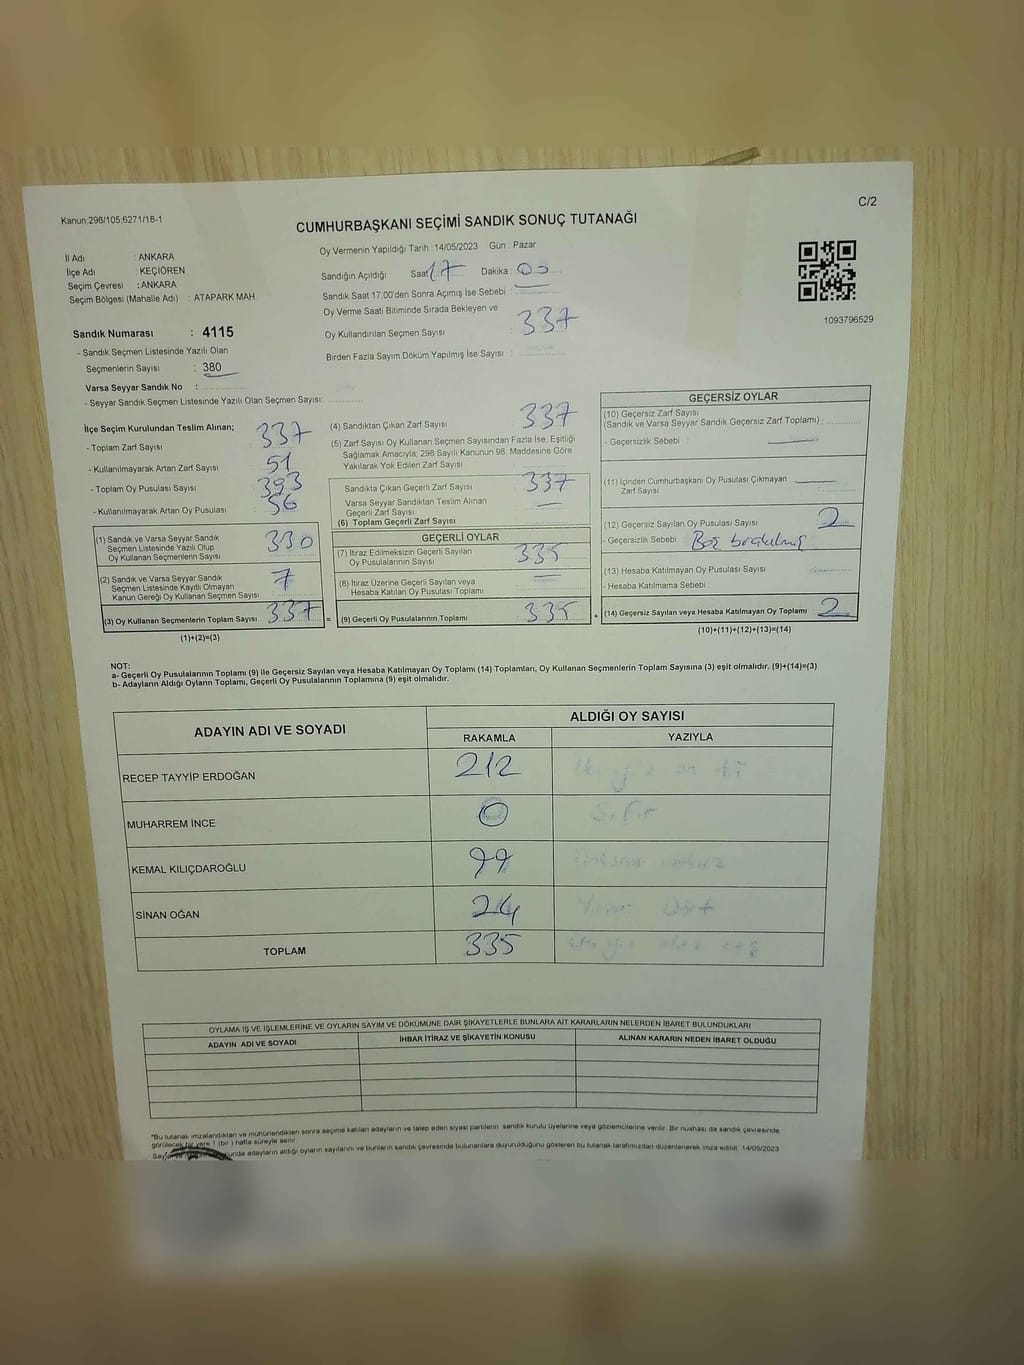 Kanun.298/105,6271/18-1
C/2
CUMHURBAŞKANI SEÇİMİ SANDIK SONUÇ TUTANAĞI
Oy Vermenin Yapıldığı Tarih : 14/05/2023 Gün : Pazar
İl Adı : ANKARA
İlçe Adı : KEÇİÖREN
Seçim Çevresi : ANKARA
Seçim Bölgesi (Mahalle Adı) : ATAPARK MAH
Sandığın Açıldığı Saat 17 Dakika : 00
Sandık Saat 17:00'den Sonra Açımış İse Sebebi :
Oy Verme Saati Bitiminde Sırada Bekleyen ve
Oy Kullandırılan Seçmen Sayısı : 337
Birden Fazla Sayım Döküm Yapılmış İse Sayısı :
1093796529
Sandık Numarası : 4115
- Sandık Seçmen Listesinde Yazılı Olan
Seçmenlerin Sayısı : 380
Varsa Seyyar Sandık No :
- Seyyar Sandık Seçmen Listesinde Yazılı Olan Seçmen Sayısı:
İlçe Seçim Kurulundan Teslim Alınan;
- Toplam Zarf Sayısı 337
- Kullanılmayarak Artan Zarf Sayısı 51
- Toplam Oy Pusulası Sayısı 393
- Kullanılmayarak Artan Oy Pusulası 56
(1) Sandık ve Varsa Seyyar Sandık
Seçmen Listesinde Yazılı Olup
Oy Kullanan Seçmenlerin Sayısı 330
(2) Sandık ve Varsa Seyyar Sandık
Seçmen Listesinde Kayıtlı Olmayan
Kanun Gereği Oy Kullanan Seçmen Sayısı 7
(3) Oy Kullanan Seçmenlerin Toplam Sayısı 337 =
(1)+(2)=(3)
(4) Sandıktan Çıkan Zarf Sayısı 337
(5) Zarf Sayısı Oy Kullanan Seçmen Sayısından Fazla İse, Eşitliği
Sağlamak Amacıyla; 298 Sayılı Kanunun 98. Maddesine Göre
Yakılarak Yok Edilen Zarf Sayısı
Sandıkta Çıkan Geçerli Zarf Sayısı 337
Varsa Seyyar Sandıktan Teslim Alınan
Geçerli Zarf Sayısı —
(6) Toplam Geçerli Zarf Sayısı
GEÇERLİ OYLAR
(7) İtiraz Edilmeksizin Geçerli Sayılan
Oy Pusulalarının Sayısı 335
(8) İtiraz Üzerine Geçerli Sayılan veya
Hesaba Katılan Oy Pusulası Toplamı —
(9) Geçerli Oy Pusulalarının Toplamı 335 +
GEÇERSİZ OYLAR
(10) Geçersiz Zarf Sayısı
(Sandık ve Varsa Seyyar Sandık Geçersiz Zarf Toplamı)
- Geçersizlik Sebebi : —
(11) İçinden Cumhurbaşkanı Oy Pusulası Çıkmayan —
Zarf Sayısı
(12) Geçersiz Sayılan Oy Pusulası Sayısı 2
- Geçersizlik Sebebi : Boş
(13) Hesaba Katılmayan Oy Pusulası Sayısı
- Hesaba Katılmama Sebebi :
(14) Geçersiz Sayılan veya Hesaba Katılmayan Oy Toplamı 2
(10)+(11)+(12)+(13)=(14)
NOT:
a- Geçerli Oy Pusulalarının Toplamı (9) ile Geçersiz Sayılan veya Hesaba Katılmayan Oy Toplamı (14) Toplamları, Oy Kullanan Seçmenlerin Toplam Sayısına (3) eşit olmalıdır. (9)+(14)=(3)
b- Adayların Aldığı Oyların Toplamı, Geçerli Oy Pusulalarının Toplamına (9) eşit olmalıdır.
ADAYIN ADI VE SOYADI
ALDIĞI OY SAYISI
RAKAMLA YAZIYLA
RECEP TAYYİP ERDOĞAN 212
MUHARREM İNCE 0 Sıfır
KEMAL KILIÇDAROĞLU 99
SİNAN OĞAN 24 Dört
TOPLAM 335
OYLAMA İŞ VE İŞLEMLERİNE VE OYLARIN SAYIM VE DÖKÜMÜNE DAİR ŞİKAYETLERLE BUNLARA AİT KARARLARIN NELERDEN İBARET BULUNDUKLARI
ADAYIN ADI VE SOYADI İHBAR İTİRAZ VE ŞİKAYETİN KONUSU ALINAN KARARIN NEDEN İBARET OLDUĞU
*Bu tutanak imzalandıktan ve mühürlendikten sonra seçime katılan adayların ve talep eden siyasi partilerin sandık kurulu üyelerine veya gözlemcilerine verilir. Bir nüshası da sandık çevresinde
görülecek bir yere 1 (bir ) hafta süreyle asılır.
adayların aldığı oyların sayılarını ve bunların sandık çevresinde bulunanlara duyurulduğunu gösteren bu tutanak tarafımızdan düzenlenerek imza edildi. 14/05/2023